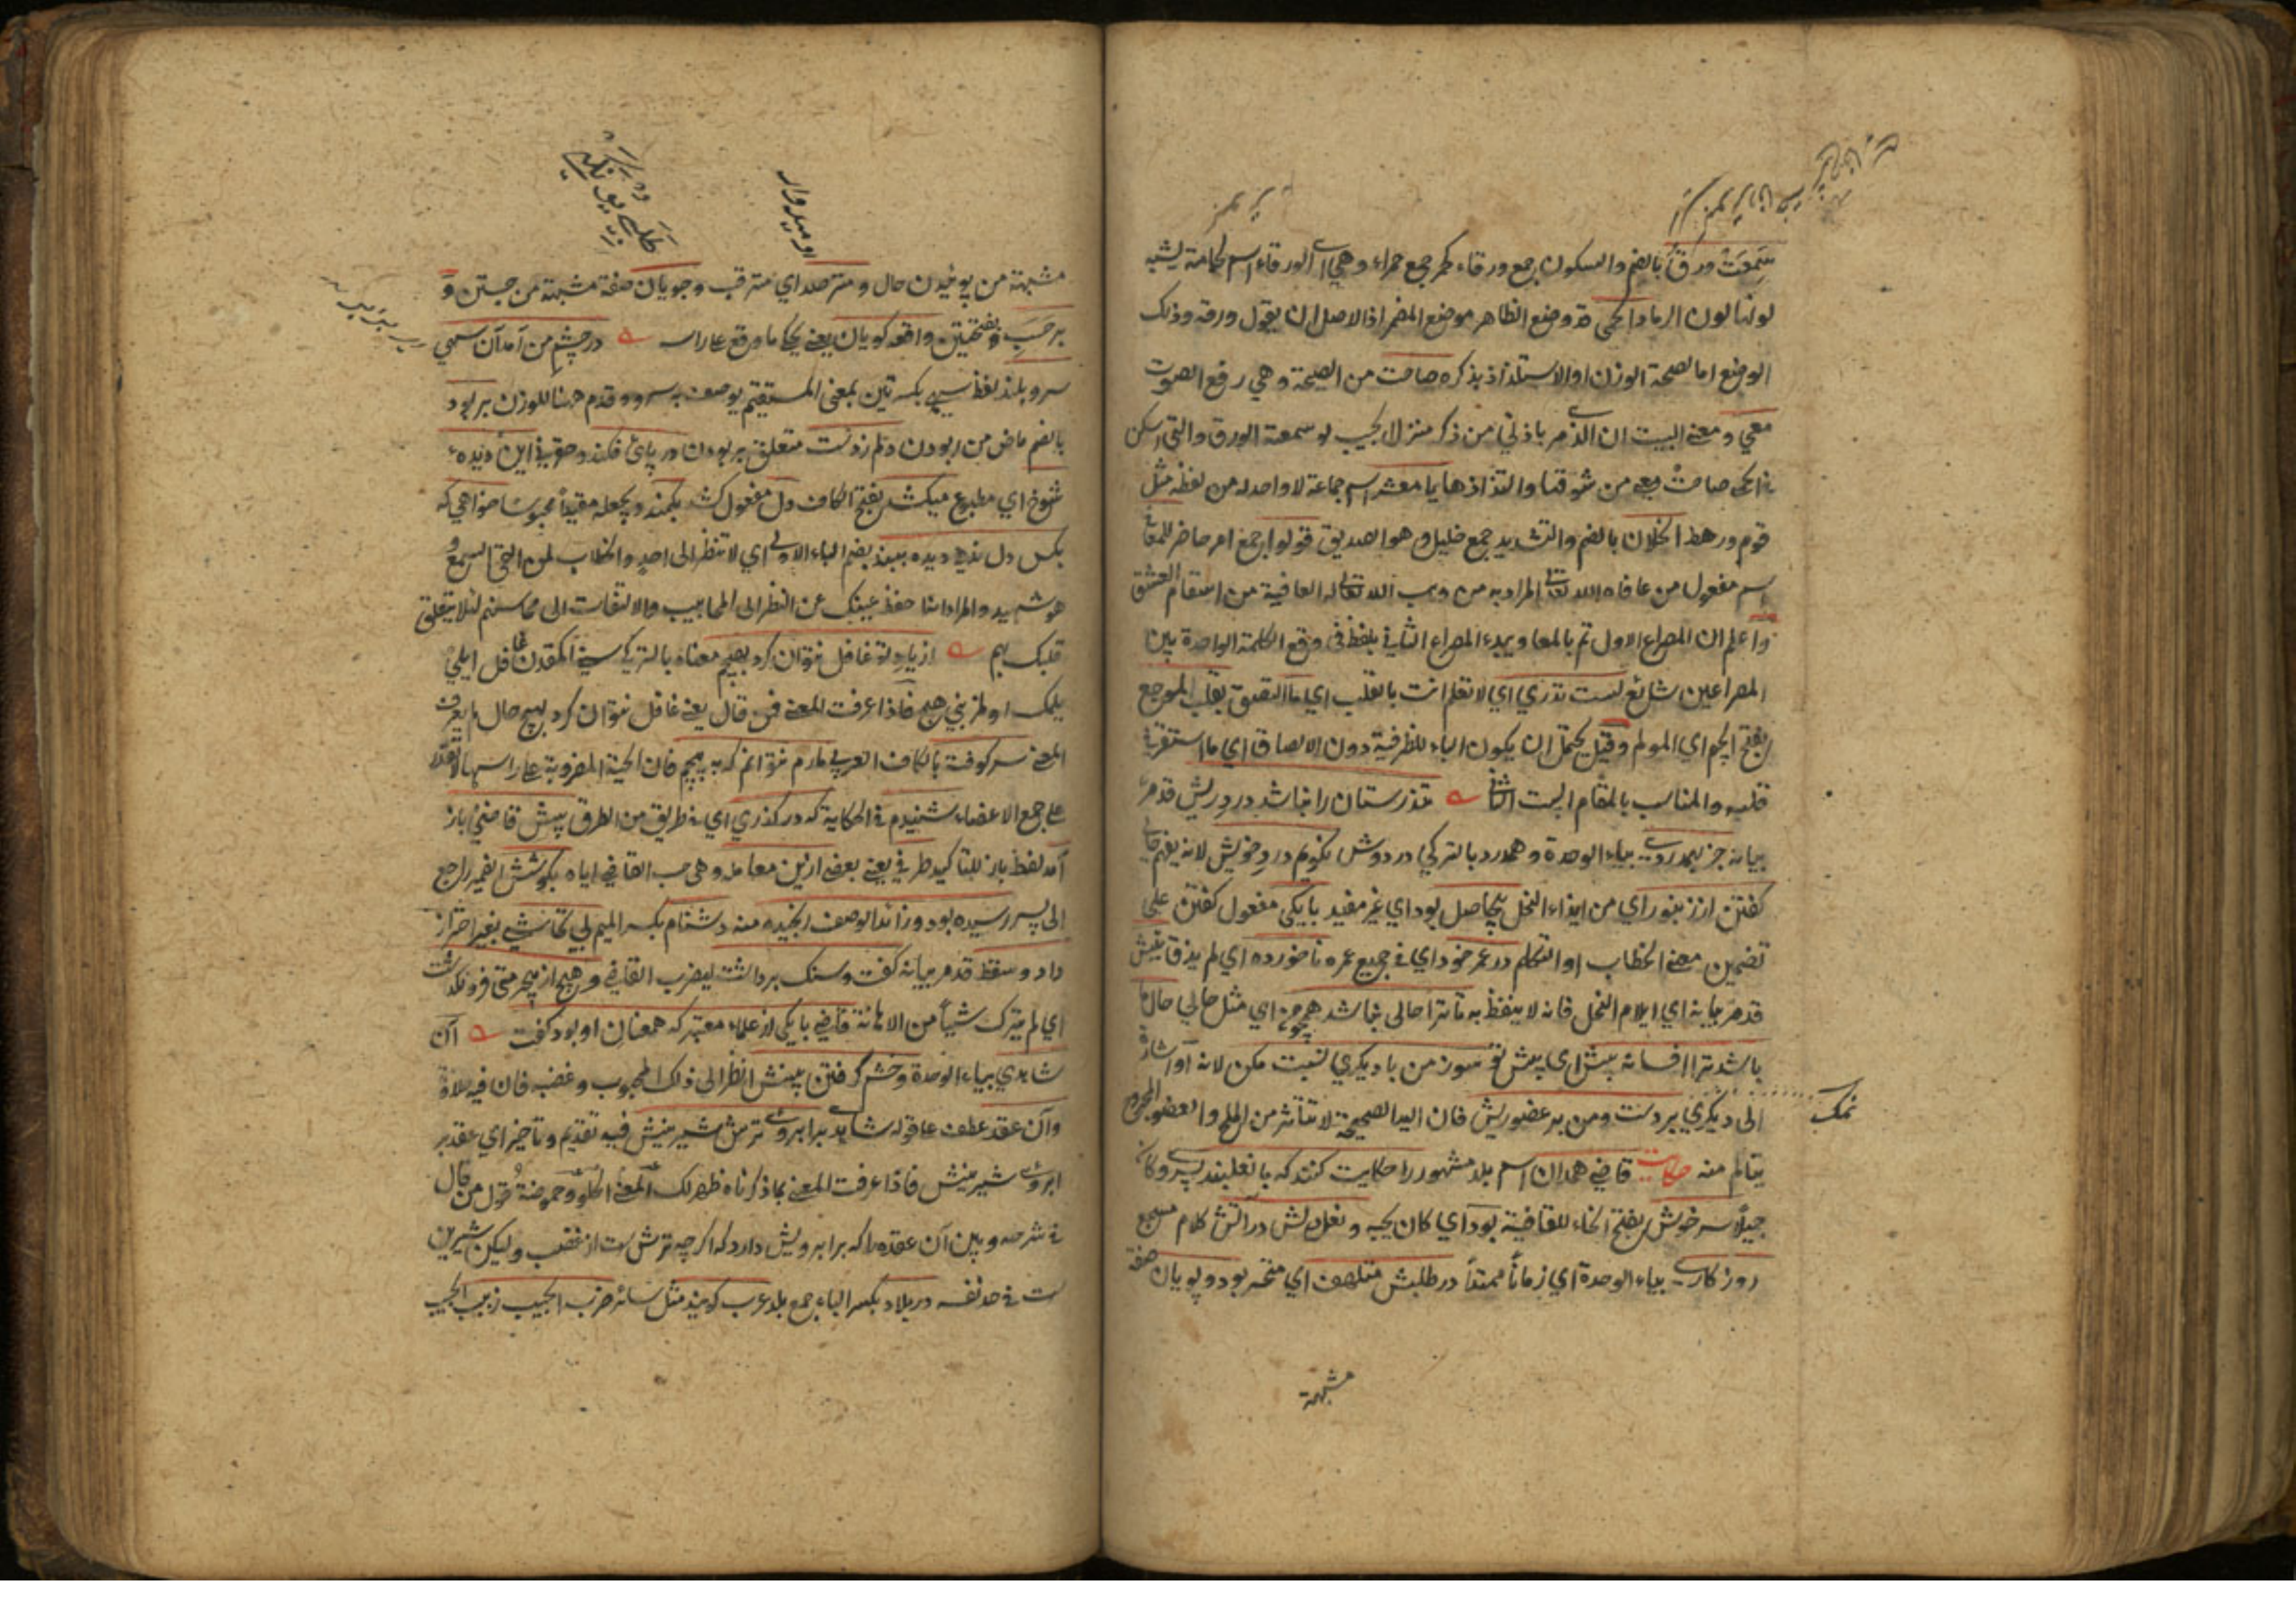 سمعت ورق بالضم والسكون جمع ورقاء كحمر جمع حمراء وهي اي الورقاء اسم لحمامة يشبه
لونها لون الرماد الحمى قد وضع الظاهر موضع المضمر اذ الاصل ان يقول ورقه وذلك
الوضع اما لصحة الوزن او الاستلذاذ بذكره صاحت من الصيحة وهي رفع الصوت
معي ومعنى البيت ان الذي مر باذني من ذكر منزل الحبيب لو سمعت الورق والتي اسكن
في الحمى صاحت معي من شوقها والتذاذها يا معشر اسم جماعة لا واحد له من لفظه مثل
قوم ورهط الخلان بالضم والتشديد جمع خليل وهو الصديق قولوا جمع امر حاضر للمعافى
اسم مفعول من عافاه الله تعالى المراد به من وهب الله تعالى له العافية من اسقام العشق
واعلم ان المصراع الاول تم بالمعا ويبدء المصراع الثاني بلفظ فى وقع الكلمة الواحدة بين
المصراعين شائع لست تدري اي لا تعلم انت بالقلب اي ما التصق بقلب الموجع
بفتح الجيم اي المولم وقيل يحتمل ان يكون الباء للظرفية دون الالصاق اي ما استقر في
قلبه والمناسب بالمقام البحث الثاني تندرستان را نباشد درد ريش قدم مر
بيانه جز بهمدردى بياء الوحدة وهمدرد بالتركي دردوش نكويم درد خويش لانه يفهم حالي
كفتن از زنبور اي من ايذاء النحل بيحاصل بود اي غير مفيد با يكى مفعول كفتن على
تضمين معنى الخطاب او التكلم در عمر خود اي في جميع عمره ناخورده اي لم يذق نيش
قدم مر بيانه اي ايلام النحل فانه لا يتفظ به تا ترا حالى نباشد همچو من اي مثل حالي حال ما
باشد ترا افسانه پيش اي پيش تو سوز من با ديكري نسبت مكن لانه او اشارة
الى ديكري بر دست ومن بر عضو ريش فان اليد الصحيحة لا تتأثر من الملح والعضو المجروح
نمك
يتألم منه حكايت قاضي همدان اسم بلد مشهور را حكايت كنند كه با نعلبند پسرى وكان
جميلاً سر خوش بفتح الخاء للقافية بود اي كان يحبه ونعل دلش در آتش كلام مسجع
روزكارى بياء الوحدة اي زماناً ممتداً در طلبش متلهف اي متحسر بود وپويان صفة
مشبهة
اوميدوار
مشبهة من پوئيدن حال ومترصد اي مترقب وجويان صفة مشبهة من جستن و
بر حسب بفتحتين واقعه كويان يعني يحكي ما وقع على راسه در چشم من آمد آن سهي
سرو بلند لفظ سهي بكسرتين بمعنى المستقيم يوصف به سرو وقدم هنا للوزن بربود
بالضم ماض من ربودن دلم ز دست متعلق بربودن در پاى فكند وحق في اين ديده
شوخ اي مطبوع ميكشد بفتح الكاف دل مفعول كشد بكمند ويجعله مقيداً محبوساً خواهي كه
بكس دل ندهي ديده ببند بضم الباء الاولى اي لا تنظر الى احد والخطاب لمن القى السمع و
هو شهيد والمراد انما حفظ عينك عن النظر الى المحابيب والالتفات الى محاسنهم لئلا يتعلق
قلبك بهم از ياد تو غافل نتوان كرد بهيچم معناه بالتركي سني اكمقدن غافل ايلمي
يلمك اولمز بني هيچ فاذا عرفت المعنى فمن قال يعنى غافل نتوان كرد بهيچ حال لم يعرف
المعنى سر كوفته بالكاف العربي مارم نتوانم كه نپيچم فان الحية المضروبة على راسها
على جمع الاعضاء شنيدم في الحكاية كه در كذري اي في طريق من الطرق پيش قاضي باز
آمد لفظ باز للتاكيد طرفي يعنى بعضى ازين معامله وهي حب القاضي اياه بكوشش الضمير راجع
الى پسر رسيده بود وزائد الوصف رنجيده منه دشنام بكسر الميم بي تحاشي بغير احتراز
داد وسقط قدم مر بيانه كفت وسنك برداشت ليضرب القاضي وهيچ از بيحرمتى فرو نكذاشت
اي لم يترك شيئاً من الاهانة قاضي با يكى از علماء معتبر كه همعنان او بود كفت آن
شاهدي بياء الوحدة وخشم كرفتن بينش انظر الى ذلك المحبوب وغضبه فان فيه حلاوة
وآن عقد عطف على قوله شاهد بر ابروى ترش شيرينش فيه تقديم وتأخير اي عقد بر
ابروى شيرينش فاذا عرفت المعنى بما ذكرناه ظهر لك المعنى الحلو وحموضة قول من قال
في شرحه وبين آن عقده را كه بر ابرويش دارد كه اكر چه ترش است از غضب وليكن شيرين
است في حد نفسه در بلاد بكسر الباء جمع بلد عرب كويند مثل سائر ضرب الحبيب زبيب الحبيب